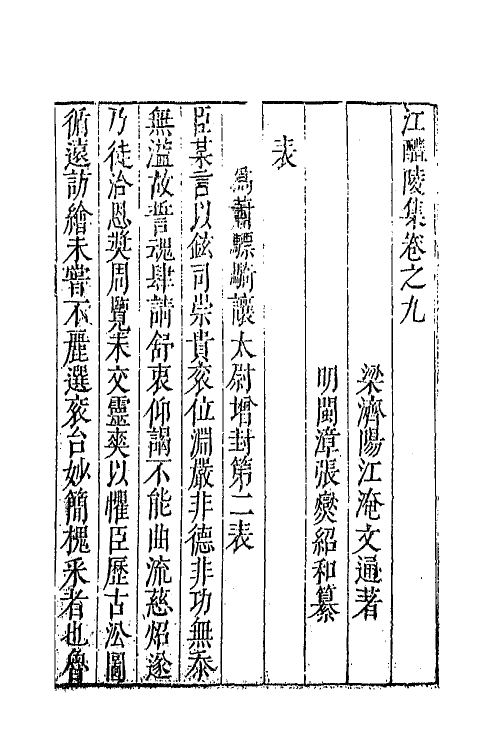 江醴陵集卷之九
梁濟陽江淹文通著
明閩漳張燮紹和纂
表
為蕭驃騎讓太尉增封第二表
臣某言以鉉司崇貴袞位淵嚴非德非功無忝
無濫故誓魂肆請舒衷仰謁不能曲流慈炤遂
乃徒洽恩奬周覽未交靈爽以懼臣歷古沿圖
循遠訪繪未嘗不麗選袞台妙簡槐采者也魯